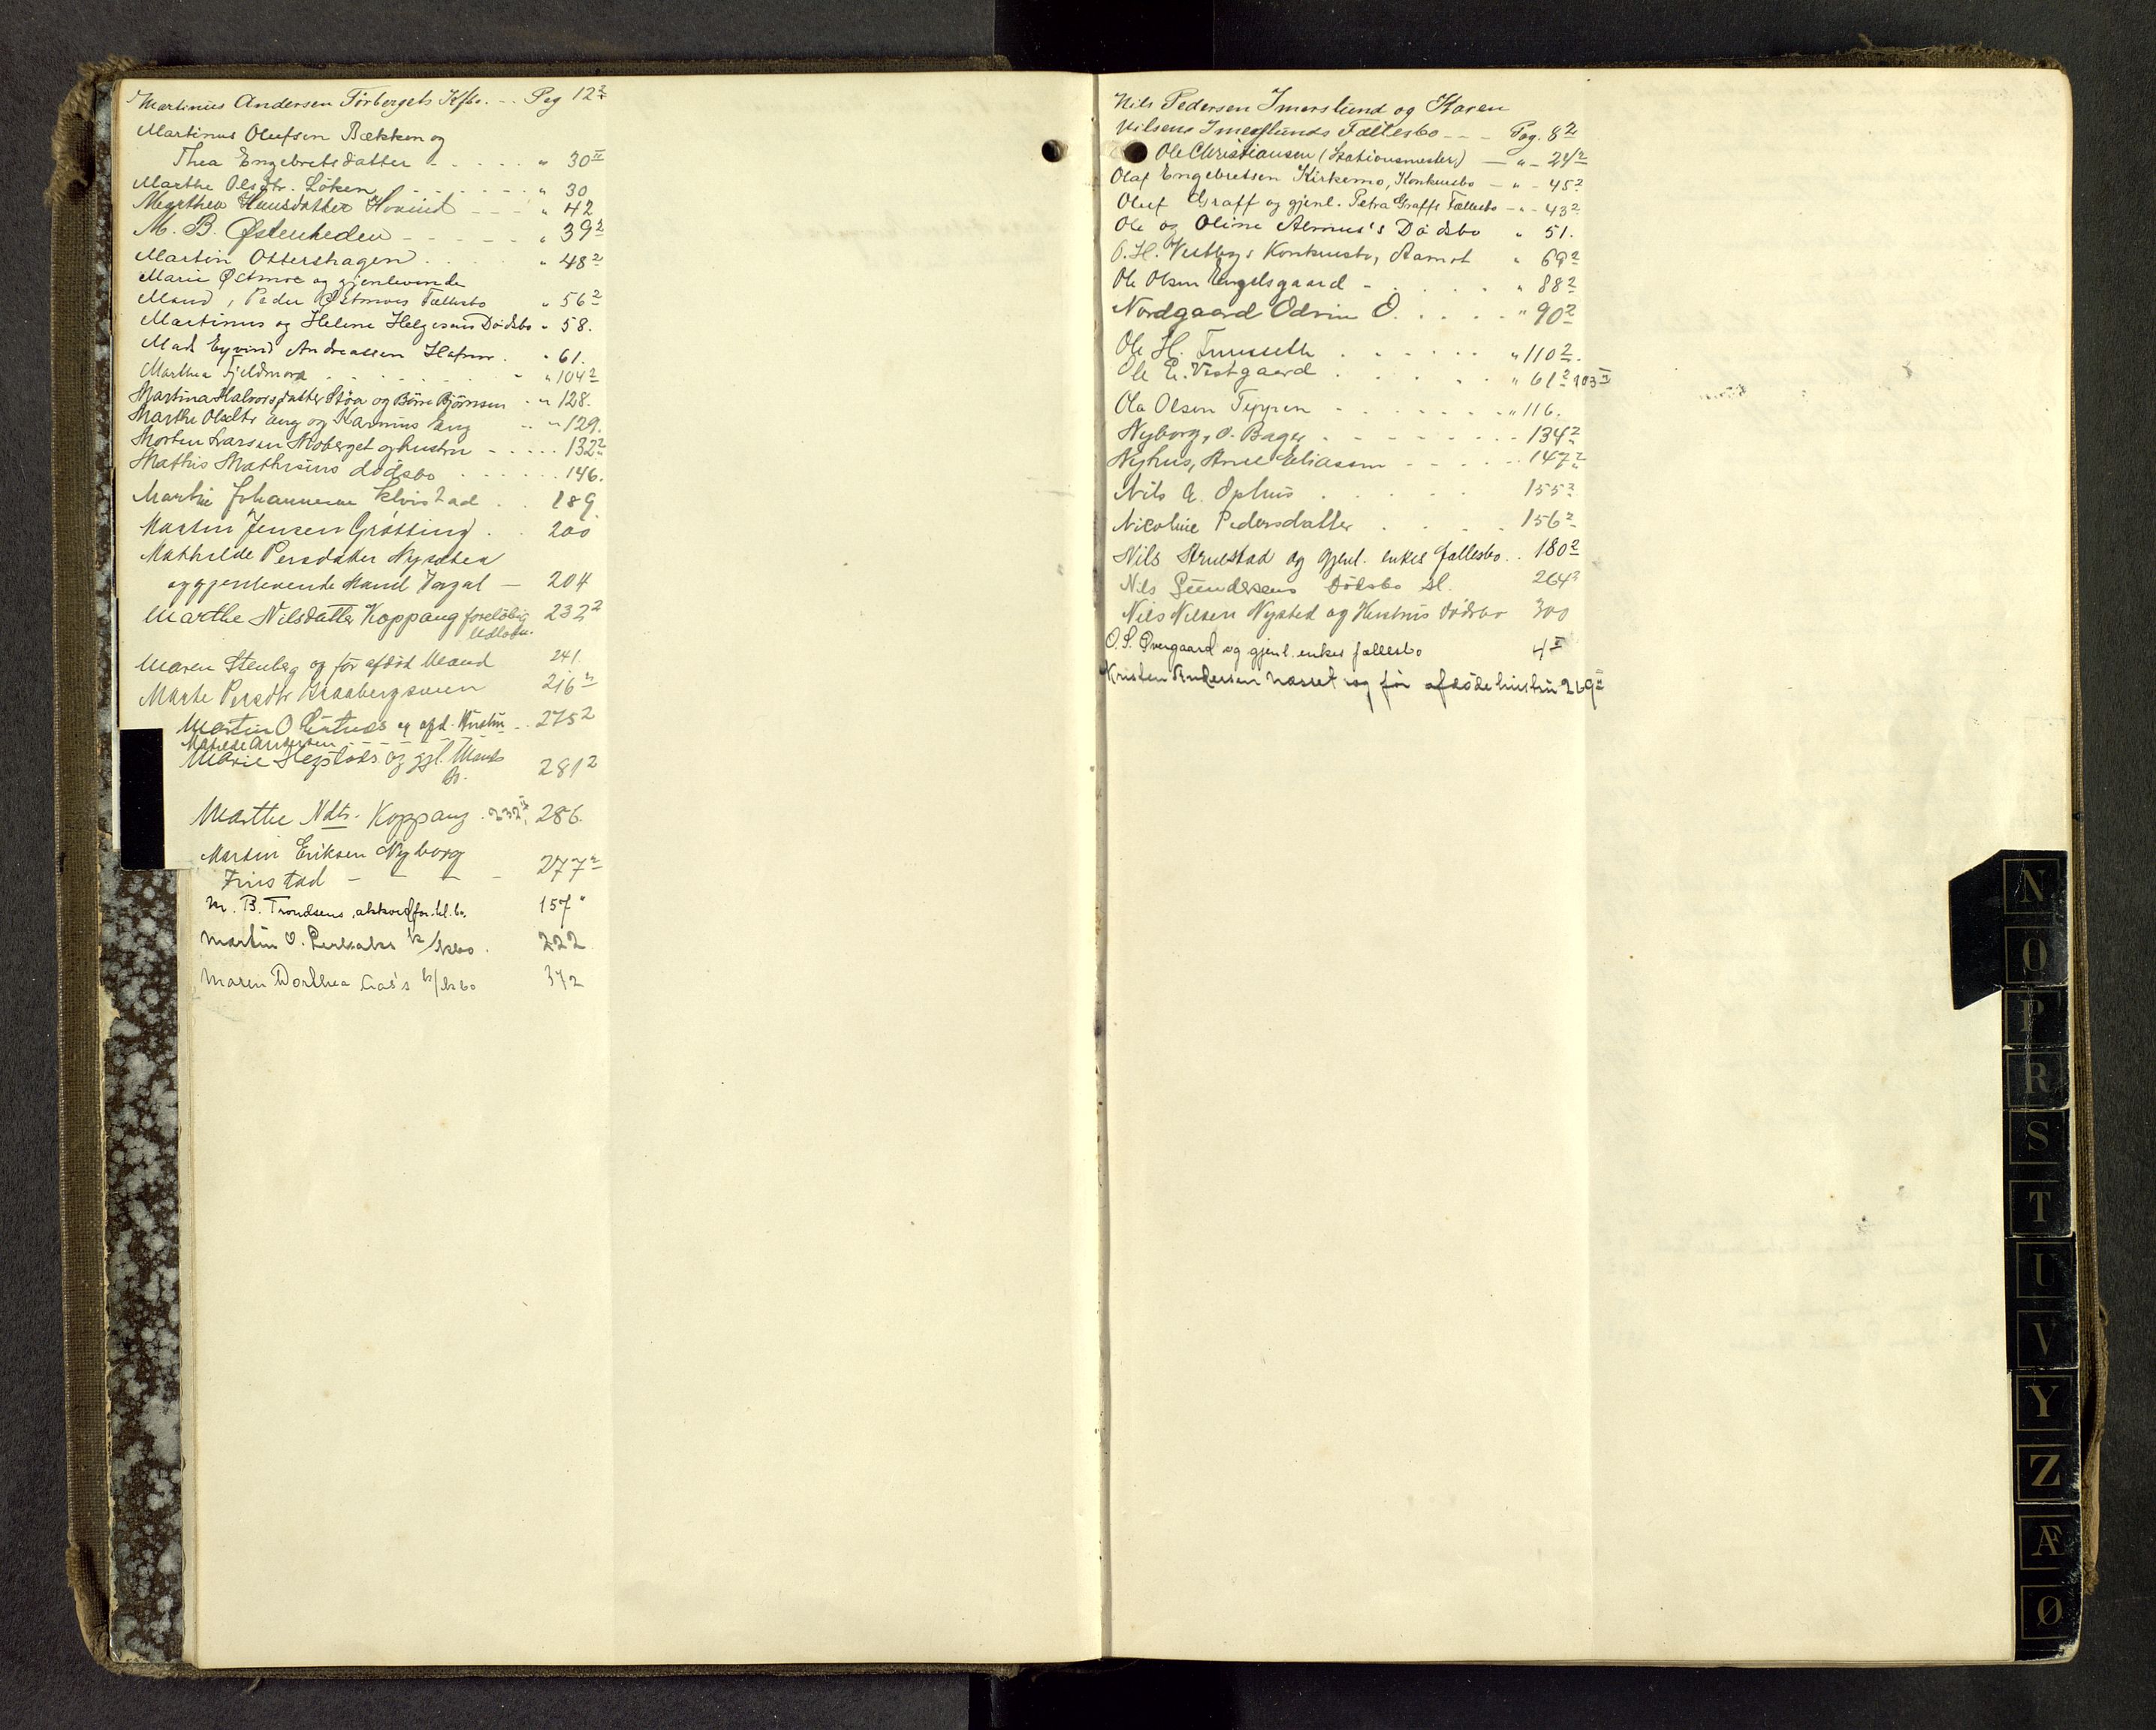 Martinus Andersen Törbergets K/bo. - - Pag 12 2
Martinus Olufsen Bækken og
Thea Engebretsdatter - . . . . " 30 II
Marthe Olsdtr. Löken . . . . . . " 30
Marthea Hansdatter Hovind - - - " 42
M. B. Østenheden - - - - - " 39 2
Martin Ottershagen . . . . " 48 2
Marie Østmoe og gjenlevende
Mand, Peder Østmoes Fællesbo " 56 2
Martinus og Helene Helgesens Dödsbo " 58.
Mads Eyvind Andreassen . " 61.
Marthea Fjeldmora . . . . . . " 104 2
Martina Halvorsdatter Støa og Börre Björnsen . " 128.
Marthe Olsdtr. Aug og Aug . . " 129.
Morten Larsen Moberget og hustru - - . . . 132 2
Mathis Mathisens dödsbo . . . . . . 146.
Martin Johannesen Kvistad . . 189
Martin Jensen Gråtting . . 200
Mathilde Persdatter Nysæter
og gjenlevende Mand — 204
Marthe Nilsdatter Koppang foreløbig 232 2
Udlodn.
Maren Stenberg og før afdöd Mand 241.
Marte Persdtr. 216 2
Martin O. og afd. Hustru . . 275 2
Matilde Andersen
Marie og gjl. Mands 281 2
Bo.
Marthe Ndtr. Koppang . 232 II, 286.
Martin Eriksen Nyborg
- - - - 277 2
M. B. Trondsens, akkordfor.bl.bo. 157 "
Martin O. k/kbo. 222
Maren Dorthea 372
Nils Pedersen Imerslund og Karen
Nilsens Imerslunds Fællesbo - - - Pag. 8 2
Ole Christiansen (Stationsmester) — " - 24 2
Olaf Engebretsen Kirkemo, Konkursbo — " - 45 2
Oluf Graff og gjenl. Petra Graffs Fællesbo - " - 43 2
Ole og Oline Dödsbo " 51.
O. H. Vestbys Konkursbo, Aamot " 69 2
Ole Olsen Engelsgaard - . . . . " 88 2
Nordgaard O. . . . . " 90 2
Ole H. . . . . . . " 110 2.
Ole E. Vestgaard . . . . . " 61 2 103 II
Ola Olsen Teppen - - - - - - - " 116.
Nyborg, O. Bager . - - - - - - - . 134 2
Nyhus, Arne Eliassen - - - - . . 147 2
Nils A. Ophus . . . . . 155 2
Nicoline Pedersdatter . . . . 156 2
Nils Arnestad og gjenl. enkes fællesbo . . 180 2
Nils Gundersens Dödsbo sl. 264 2
Nils Nilsen Nysted og Hustrus dödsbo 300
O. S. Øvergaard og gjenl. enkes fællesbo 4 II
Kristen Andersen Nasset og för afdöde hustru 269 II
N
O
P
R
S
T
U
V
Y
Z
Æ
Ø